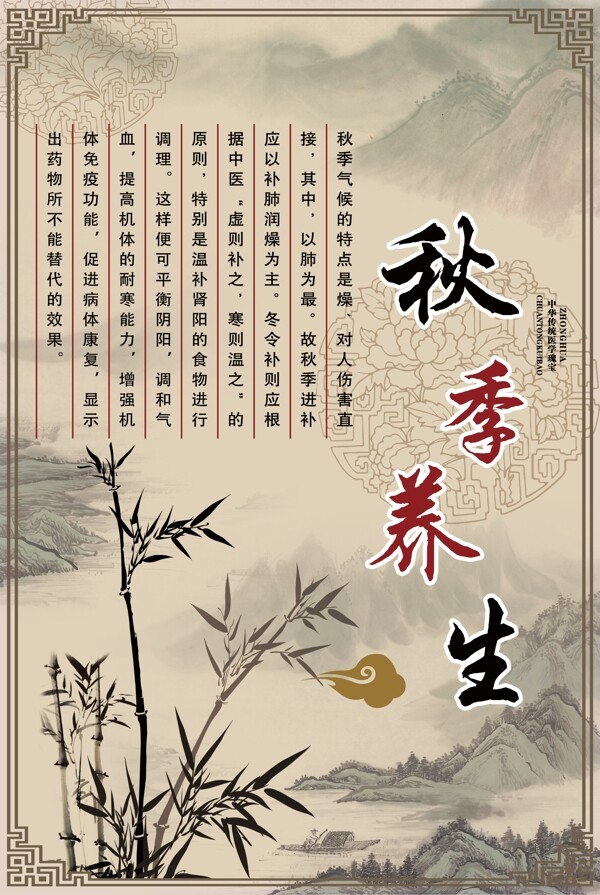 秋季养生
中华传统医学瑰宝
ZHONGHUA
CHUANTONGKUIBAO
秋季气候的特点是燥、对人伤害直
接，其中，以肺为最。故秋季进补
应以补肺润燥为主。冬令补则应根
据中医“虚则补之，寒则温之”的
原则，特别是温补肾阳的食物进行
调理。这样便可平衡阴阳，调和气
血，提高机体的耐寒能力，增强机
体免疫功能，促进病体康复，显示
出药物所不能替代的效果。